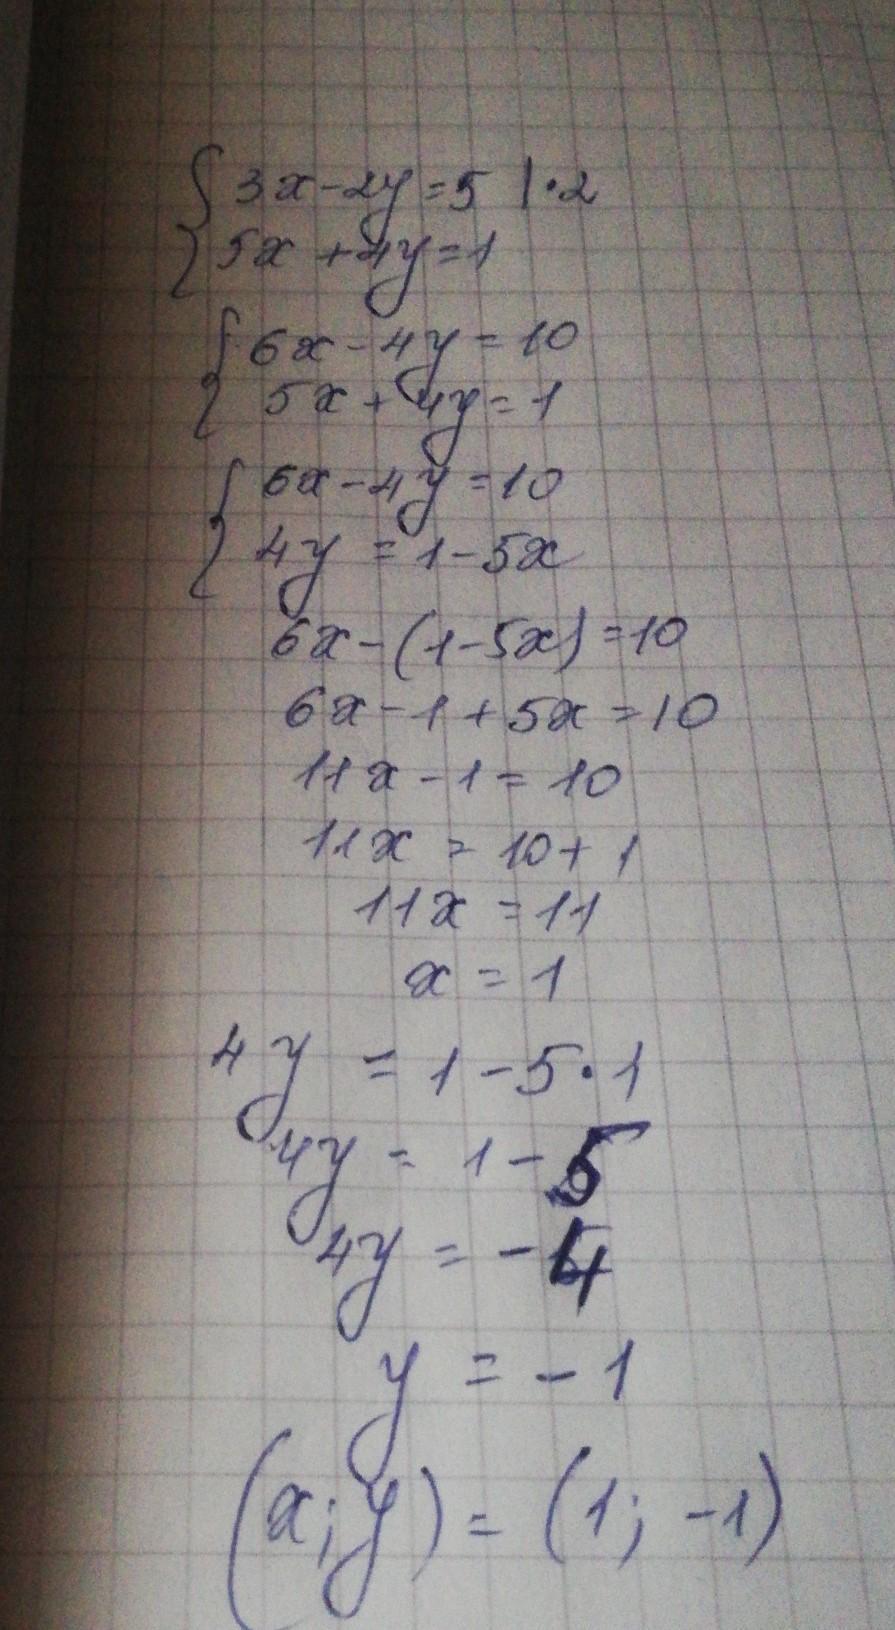 { 3x-2y=5 |·2
5x+4y=1
{ 6x-4y=10
5x+4y=1
{ 6x-4y=10
4y=1-5x
6x-(1-5x)=10
6x-1+5x=10
11x-1=10
11x=10+1
11x=11
x=1
4y=1-5·1
4y=1-5
4y=-4
y=-1
(x;y)=(1;-1)